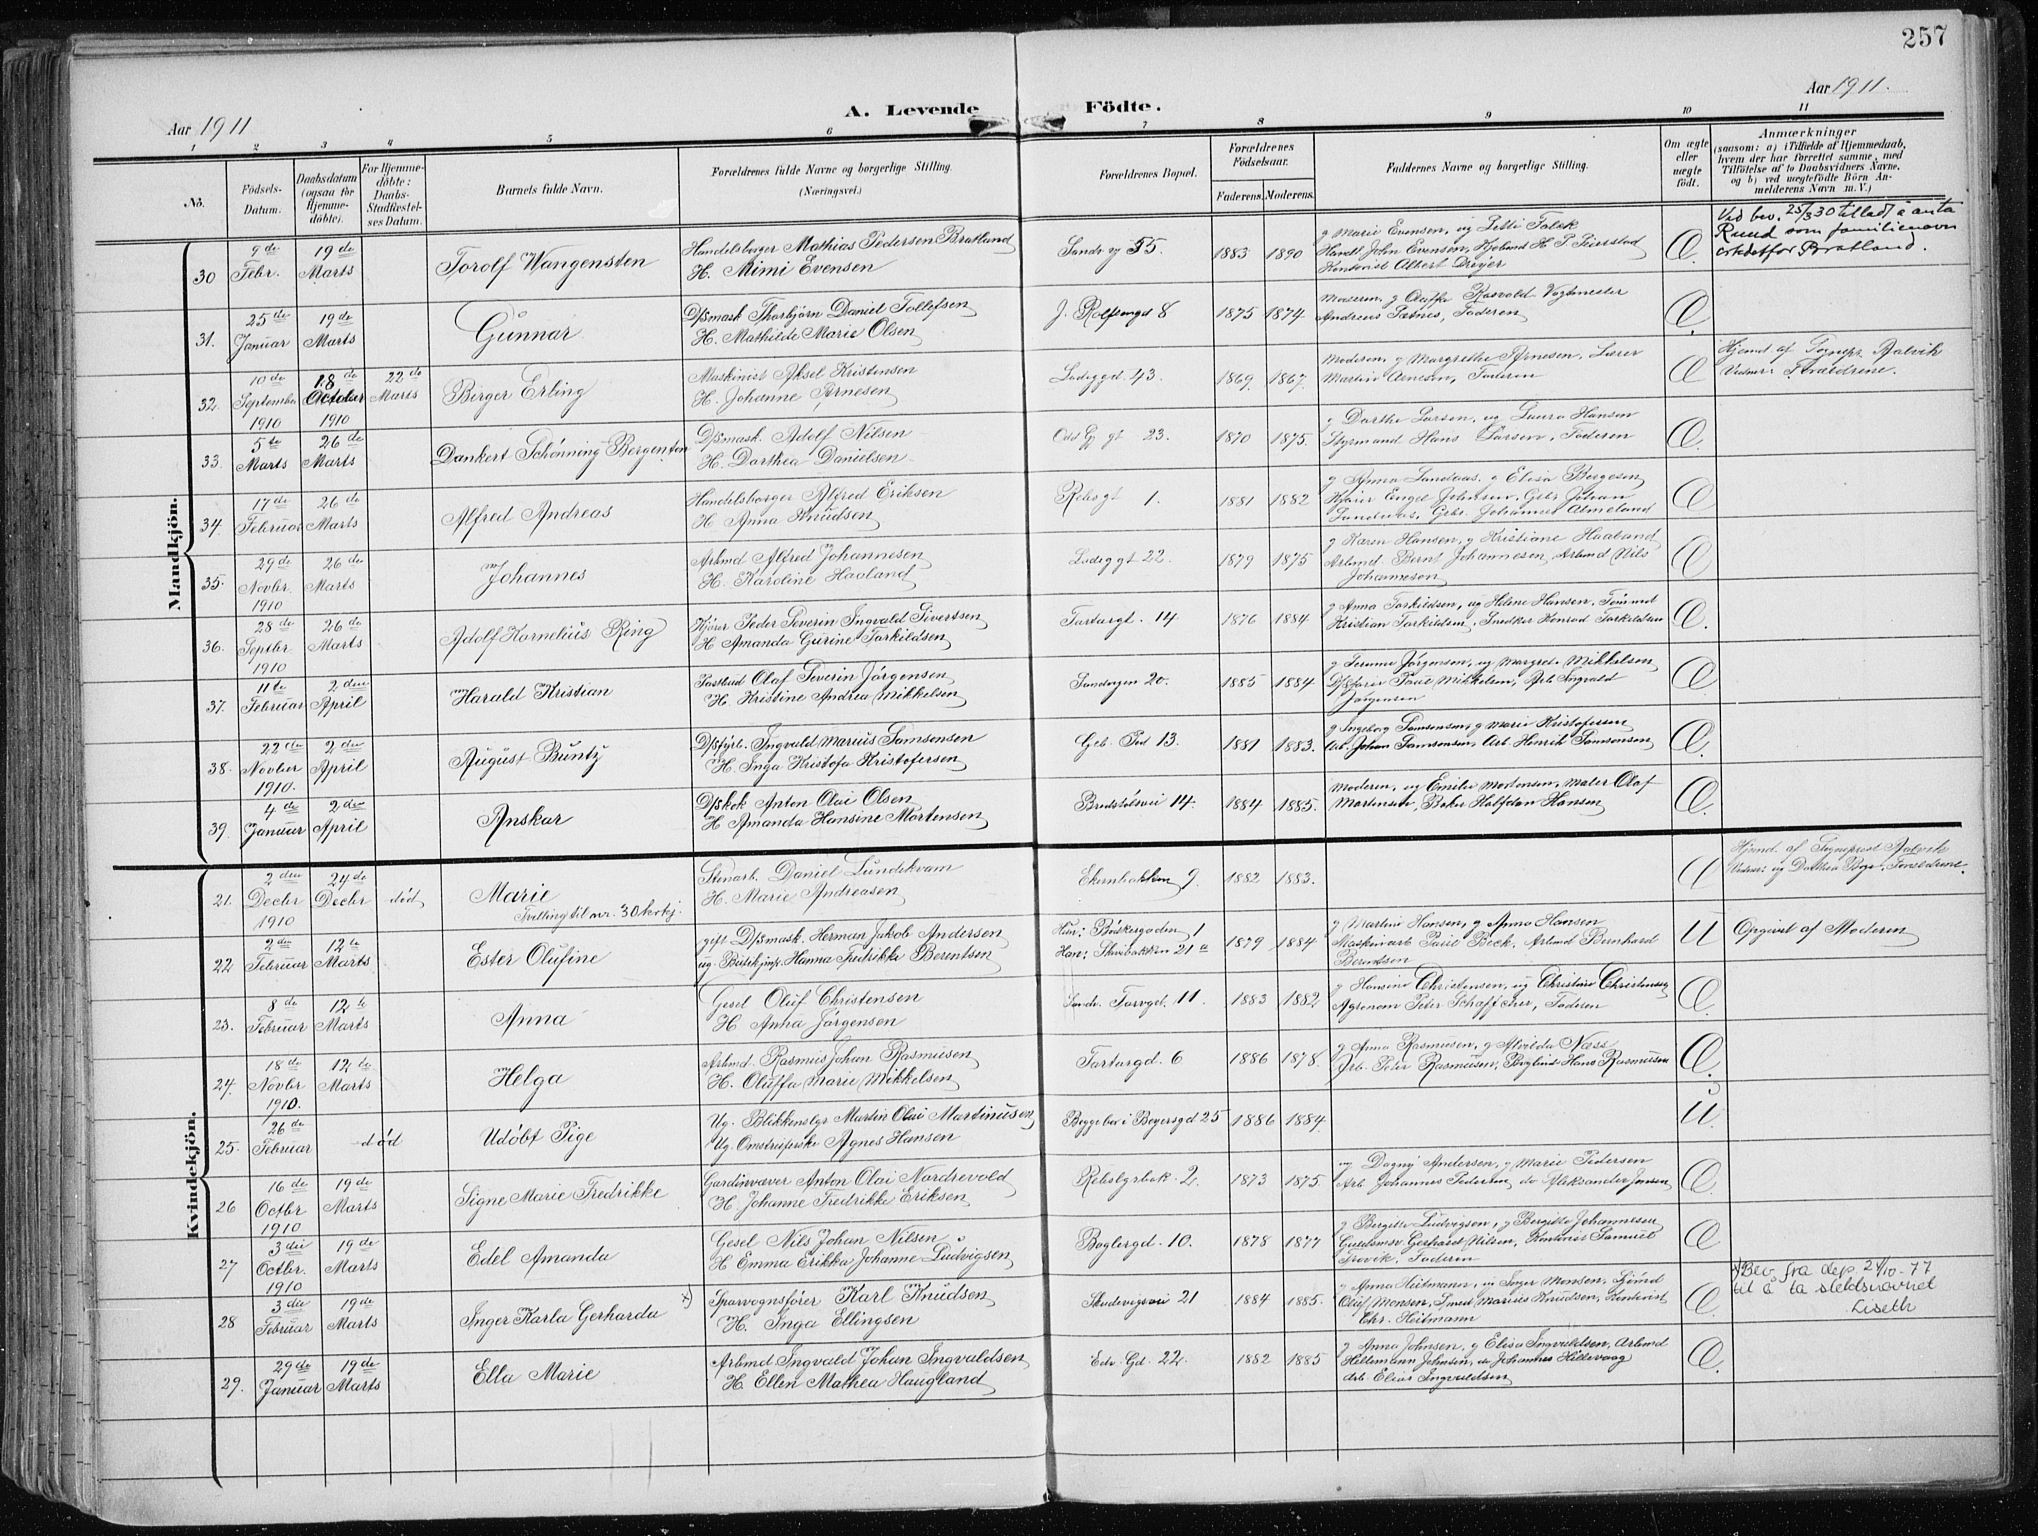 257
Aar 1911
A. Levende Födte.
Aar 1911.
1 2 3 4 5 6 7 8 9 10 11
No.
Födsels-Datum.
Daabsdatum (ogsaa for Hjemme-döbte).
For Hjemme-döbte: Daabs-Stadfæstel-ses Datum.
Barnets fulde Navn.
Forældrenes fulde Navne og borgerlige Stilling. (Næringsvei.)
Forældrenes Bopæl.
Forældrenes Födselsaar.
Faderens. Moderens.
Faddernes Navne og borgerlige Stilling.
Om ægte eller uægte födt.
Anmærkninger
(saasom: a) i Tilfælde af Hjemmedaab,
hvem der har forrettet samme, med
Tilföielse af to Daabsvidners Navne,
og b) ved uægtefödte Börn An-
melderens Navn m. V.)
Mandkjön.
30 9de Febr. 19de Marts Torolf Wangensten
Handelsborger Mathias Pedersen Bratland
H. Mimi Evensen
Sandvig 55 1883 1890
g Marie Evensen, ug Petti Falck
Handl John Evensen, H. P. Feierstad
Kontorist Albert Dreyer
Æ.
Ved bev. 25/3 30 tilladt å anta
Ruud som familienavn
istedetfor Bratland.
31. 25de Januar 19de Marts Gunnar
D/smask Thorbjörn Daniel Tollefsen
H. Mathilde Marie Olsen
J. Rolfsengd 8 1875 1874
Moderen, g Oluffa Rosvold Vogtmester
Andreas Sætnes, Faderen
Æ.
32. 10de September 1910 18de October 1910 22de Marts Birger Erling
Maskinist Aksel Kristensen
H. Johanne Arnesen
Lodeggd. 43. 1869 1867.
Moderen, g Margrethe Arnesen, Lærer
Martin Arnesen, Faderen
Æ
Hjemd af Sognepr. Aalvik
Vidner: Forældrene.
33. 5te Marts 26de Marts Dankert Schönning Bergenton
D/smask. Adolf Nilsen
H. Dorthea Danielsen
Odd Gj gt 23. 1870 1875.
g Dorthe Larsen, ug Laura Hansen
Styrmand Hans Larsen, Faderen
Æ.
34. 17de Februar 26de Marts Alfred Andreas
Handelsborger Alfred Eriksen
H. Anna Knudsen
Rebsgt 1. 1881 1882
g Anna Sandaas, g Elisa Bergesen
Kjører Engel Johnsen, Gbr Johan
Sandaas, Gbr. Johannes Almeland
Æ.
35. 29de Novbr. 1910 26de Marts Johannes
Arbmd Alfred Johannesen
H. Karoline Haaland
Lodeggt 22. 1879 1875
g Karen Hansen, g Kristiane Haaland
Arbmd. Bernt Johannesen, Arbmd Nils
Johannesen
Æ.
36. 28de Septbr. 1910 26de Marts Adolf Kornelius Ring
Kjører Peder Severin Ingvald Sivertsen
H Amanda Gurine Torkildsen
Tartargt. 14. 1876 1884
g Anna Torkildsen, ug Helene Hansen, Tömmd
Kristian Torkildsen, Snedker Konrad Torkildsen
Æ.
37. 11te Februar 2den April Harald Kristian
Postbud Olaf Severin Jörgensen
H. Kristine Andrea Mikkelsen
Sandvigen 20. 1885 1884
g Serine Jörgensen, ug Margrete Mikkelsen
Paul Mikkelsen, Arb Ingvald
Jörgensen
Æ.
38. 22de Novbr 1910. 2den April August Buntz
D/sfyrb. Ingvald Marius Samsonsen
H. Inga Kristofa Kristofersen
13. 1881 1883.
g Ingeborg Samsonsen, g Marie Kristofersen
Arb. Johan Samsonsen, Arb. Henrik Samsonsen
Æ.
39. 4de Januar 2den April Anskar
D/skok Anton Olai Olsen
H Amanda Hansine Mortensen
Bredstölsvei 14. 1884 1885.
Moderen, ug Emilie Mortensen, Maler Olaf
Mortensen, Baker Halfdan Hansen
Æ.
Kvindekjön.
21. 2den Decbr 1910 24de Decbr död Marie
Tvilling til nr. 30
Stenarb. Daniel Lundekvam
H. Marie Andreasen
Ekernbakken 9 1882 1883.
Æ
Hjemd. af Sogneprest Aalvik
22 2den Februar 12te Marts Ester Olufine
gift D/smask. Herman Jakob Andersen
ug. Butikjmf. Hanna Fredrikke Berentsen
Hun: Bödkergaden 1
Han: Skivebakken 21a 1879 1884
g Martine Hansen, g Anna Hansen
Maskinarb Paul Beck, Arbmd Bernhard
Berentsen
U
Opgivet af Moderen
23. 8de Februar 12te Marts Anna
Gesel Oluf Christensen
H. Anna Jörgensen
Sandv. Torvgd. 11. 1883 1882
g Hansine Christensen, ug Christine Christensen
Agronom Peter Schaffcher, Faderen
Æ.
24. 18de Novbr 1910. 12te Marts Helga
Arbmd. Rasmus Johan Rasmusen
H. Oluffa Marie Mikkelsen
Tartargd. 6 1886 1878.
g Anna Rasmusen, g Alvilda Næss
Arb. Peter Rasmusen, Hans Rasmusen
Æ.
25. 26de Februar död Udöbt Pige
Ug. Blikkenslgr Martin Olai Martinusen
Ug. Agnes Hansen
Beyersgd 25 1886 1884.
U.
26 16de Octbr 1910 19de Marts Signe Marie Fredrikke
Gardinvæver Anton Olai Nordrevold
H Johanne Fredrikke Eriksen
Rebslgrbak. 2. 1873 1875
ug Dagny Andersen, g Marie Pedersen
Arb. Johannes Pedersen, do Aleksander Jensen
Æ.
27 3die Octbr. 1910 19de Marts Edel Amanda
Gesel Nils Johan Nilsen
H Emma Erikka Johanne Ludvigsen
Baglergd. 10. 1878 1877
g Bergitte Ludvigsen, g Bergitte Johannesen
Guldsmsv Gerhard Nilsen, Kontorist Samuel
Trovik, Faderen
Æ.
28 3die Februar 19de Marts Inger Karla Gerharda x)
Sporvognsförer Karl Knudsen
H. Inga Ellingsen
Skudevigsvei 21 1884 1885.
g Anna Heitmann, ug Inger Monsen, Sjömd
Oluf Monsen, Smed Marius Knudsen, Kontorist
Chr. Heitmann
Æ.
x) Bev. fra dep. 24/10-77
til å ta slektsnavnet
Liseth
29. 29de Januar 19de Marts Ella Marie
Arbmd Ingvald Johan Ingvaldsen
H. Ellen Mathea Haugland
Edv. Gd. 22. 1882 1885
g Anna Johnsen, g Elisa Ingvaldsen, Arbmd
Hillemann Johnsen, do Johannes Hillevaag
Arb. Elias Ingvaldsen
Æ.